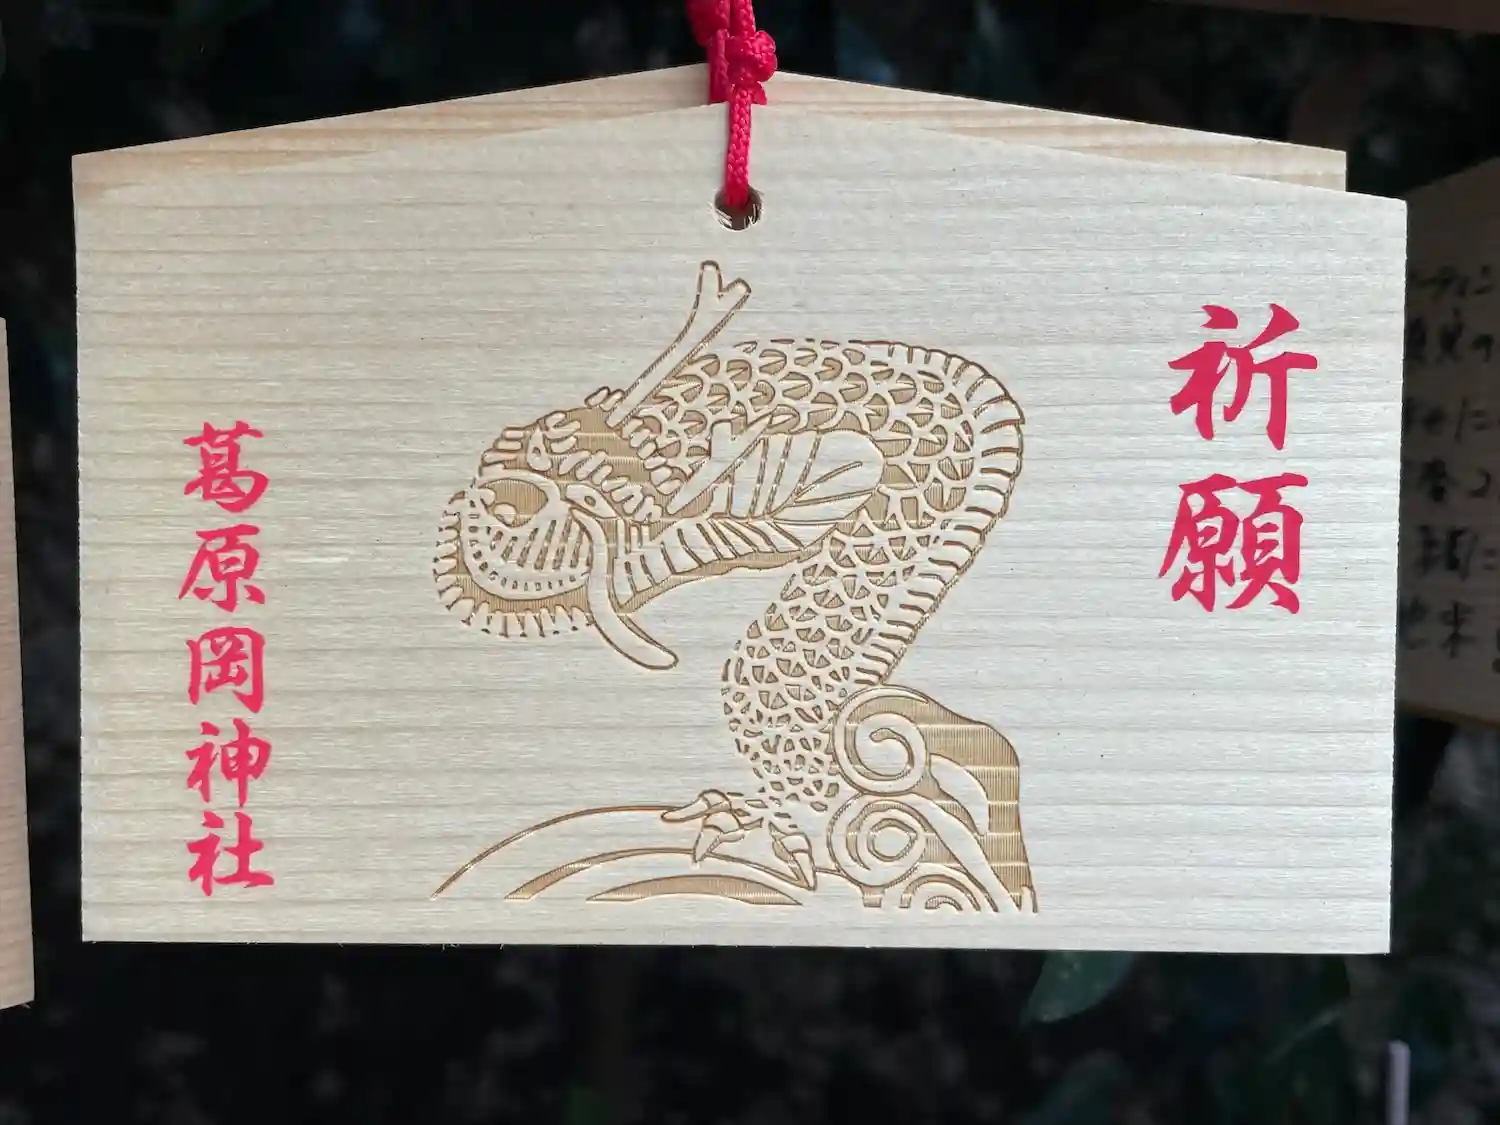 祈願
葛原岡神社